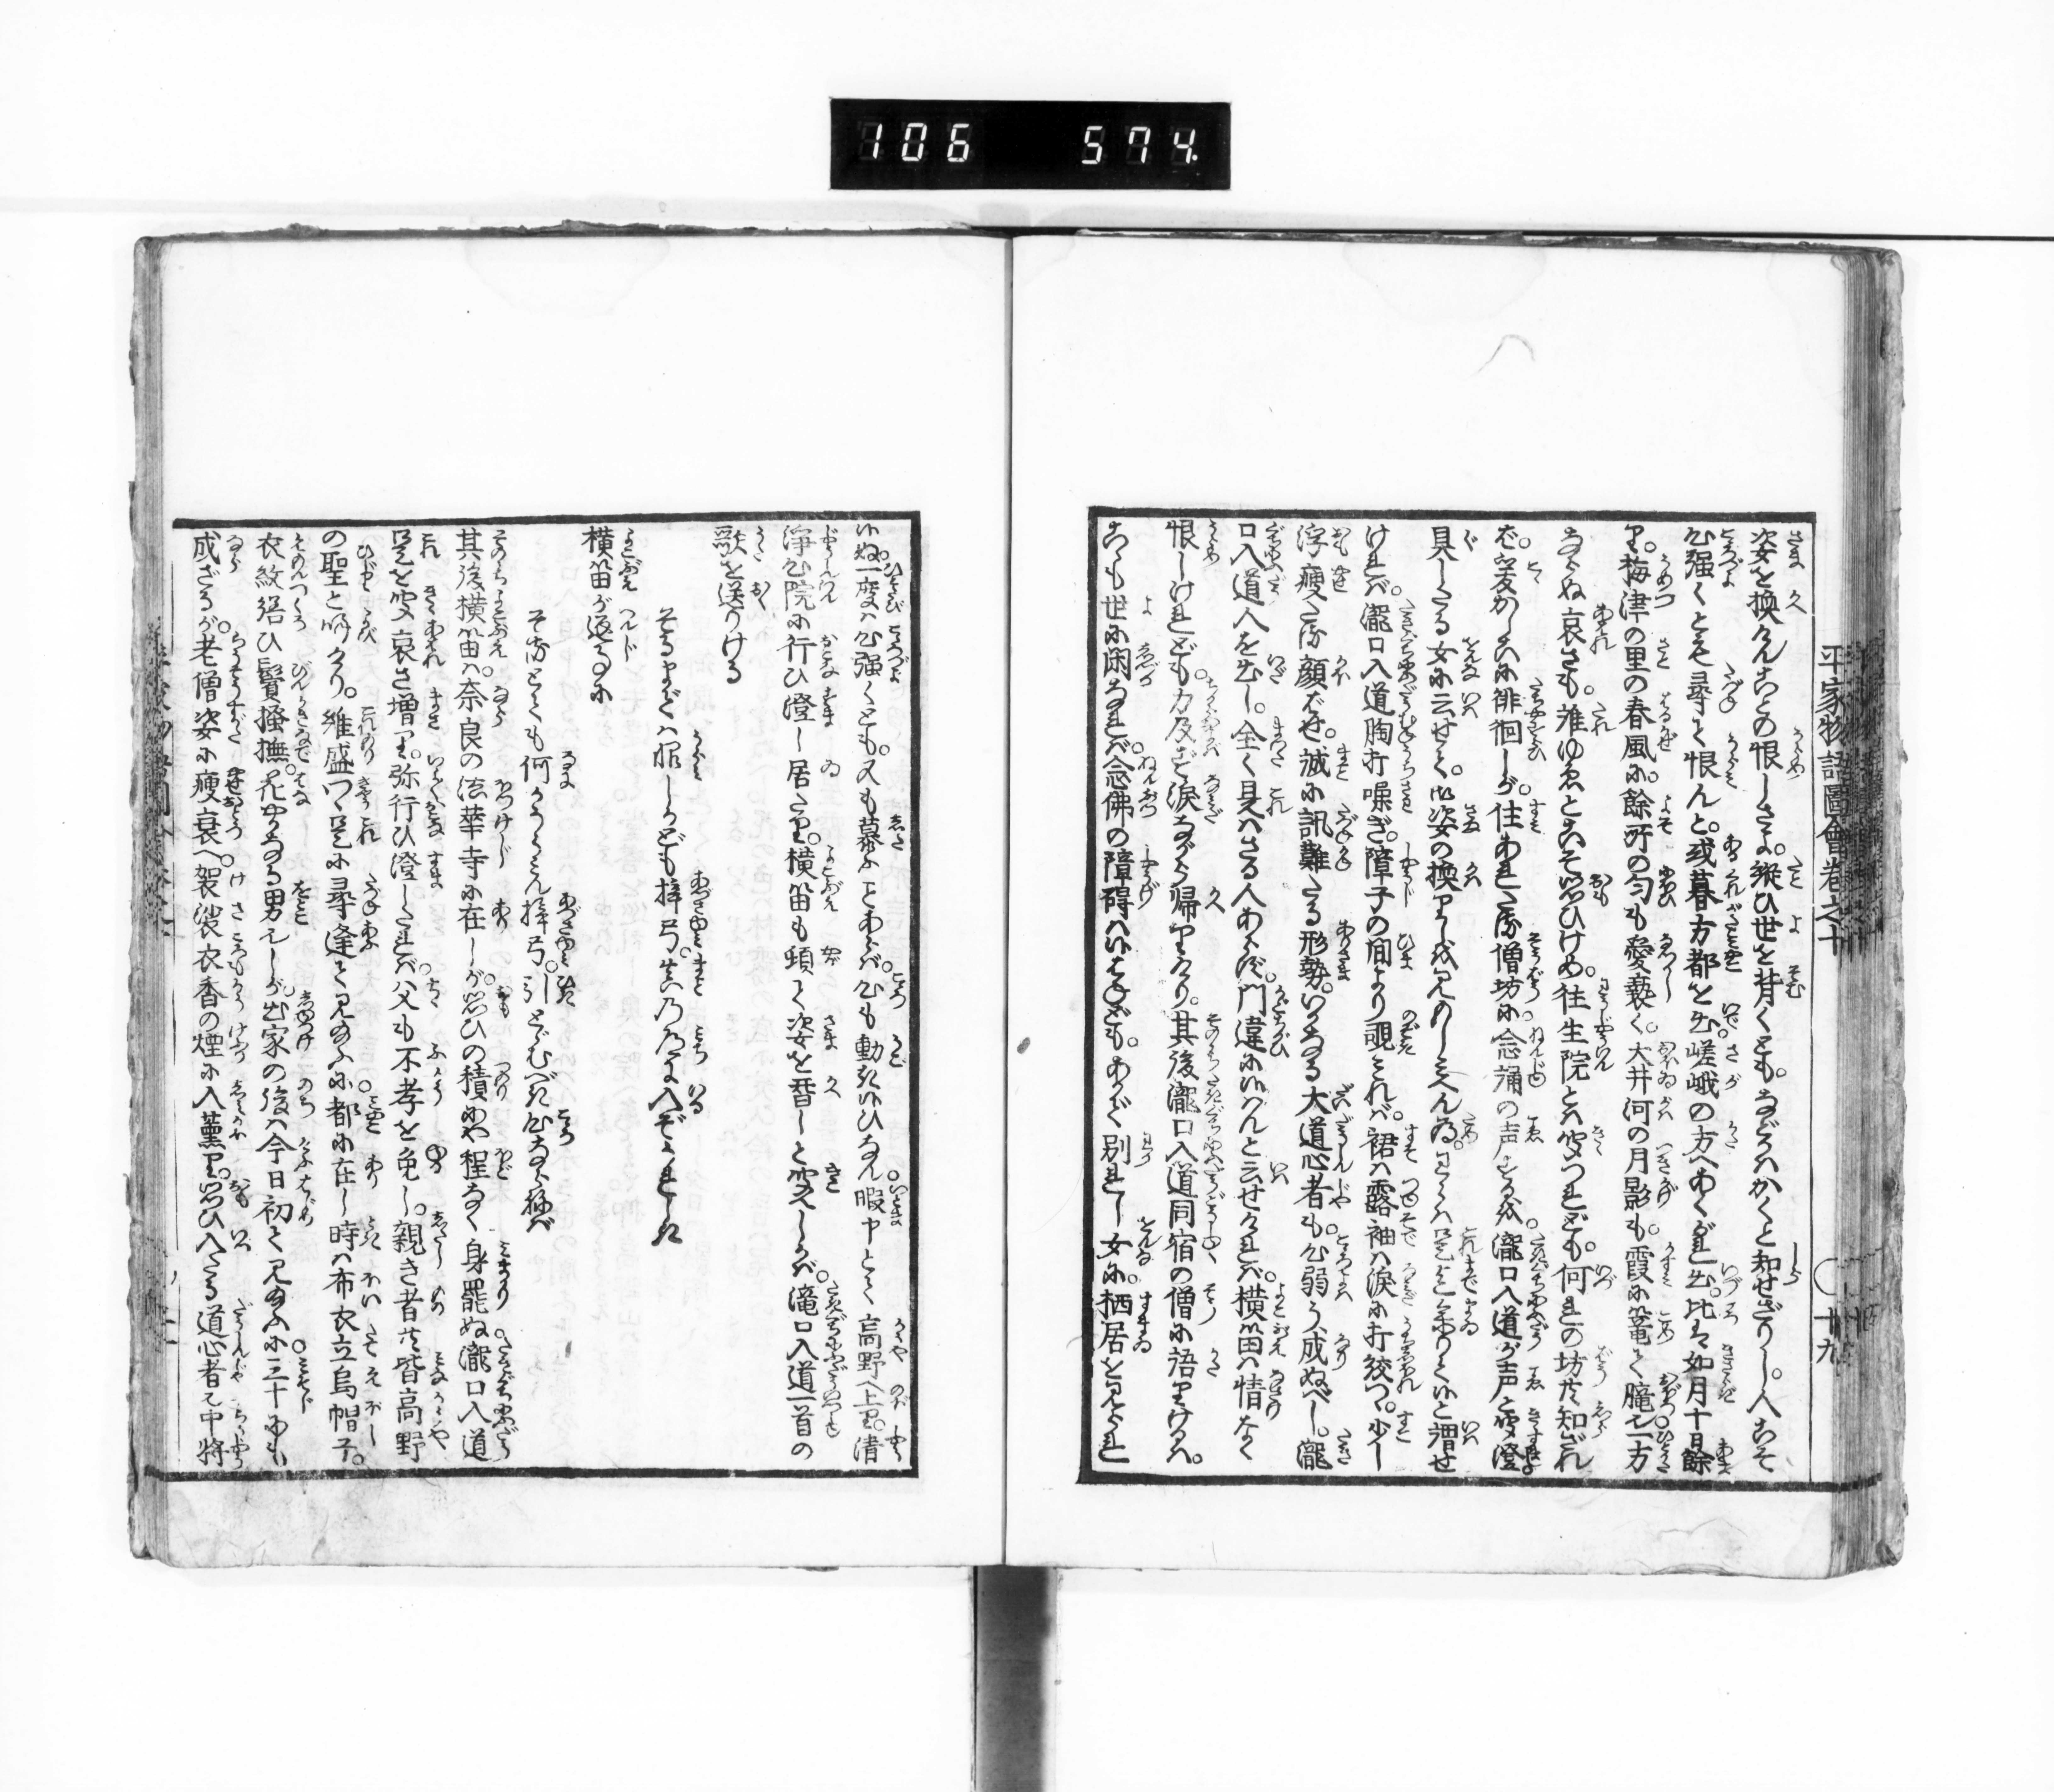 106 574
平家物語圖會卷之十
十九
姿を換けんことの恨しさよ。縦ひ世を背くとも。などかはかくと知せざりし。人こそ
心强くとも尋て恨んと。或暮方都を出。嵯峨の方へあくがれ出。比は如月十日餘
り。梅津の里の春風に。餘所の匂も愛藝く。大井河の月影も。霞に篭て朧也一方
ならぬ哀さも。誰ゆゑとこそ思ひけめ。往生院とは聞つれども。何れの坊共知ざれ
ば。爰かしこに徘徊しが。住あれたる僧坊に念誦の声するを瀧口入道が声と聞澄
具したる女に云せて。御姿の換りしを見奉らん為。わらはこれまで参りて候と謂せ
ければ。瀧口入道胸打噪ぎ。障子の間より覗みれば。裾は露袖は涙に打絞つ。少し
浮瘦たる顔ばせ。誠に訊難たる形勢。いかなる大道心者も。心弱う成ぬべし。瀧
口入道人を出し。全く是にはさる人あらず。門違に候はんと云せければ。横笛は情なく
恨しけれども。力及ばず涙ながら帰りけり。其後瀧口入道同宿の僧に語りけるは。
こゝも世に閑なれば。念佛の障碍は候はねども。あかで別れし女に。栖居を見られ
候ぬ。一度は心强くとも。又も慕ふことあらば。心も動き候ひなん暇申とて高野へ上り。清
浄心院に行ひ澄し居たり。横笛も頓て姿を替しと聞えしかば。滝口入道一首の
歌を送りける
そるまでは恨しかども梓弓。真の道に入ぞうれしき
横笛が返事に
そるとても何かうらみん梓弓。引とゞむべき心ならねば
其後横笛は。奈良の法華寺に在しが。思ひの積にや程なく身罷ぬ瀧口入道
是を聞哀さ増り。弥行ひ澄したれば。父も不孝を免し。親き者共皆高野
の聖と呼けり。維盛つく是に尋逢て見給ふに。都に在し時は布衣立烏帽子。
衣紋繕ひ鬢掻撫。花やかなる男也しが。出家の後は今日初て見給ふに。三十にも
成ざるが。老僧姿に瘦衰へ。袈裟衣香の煙に入薰り。思ひ入たる道心者也中将